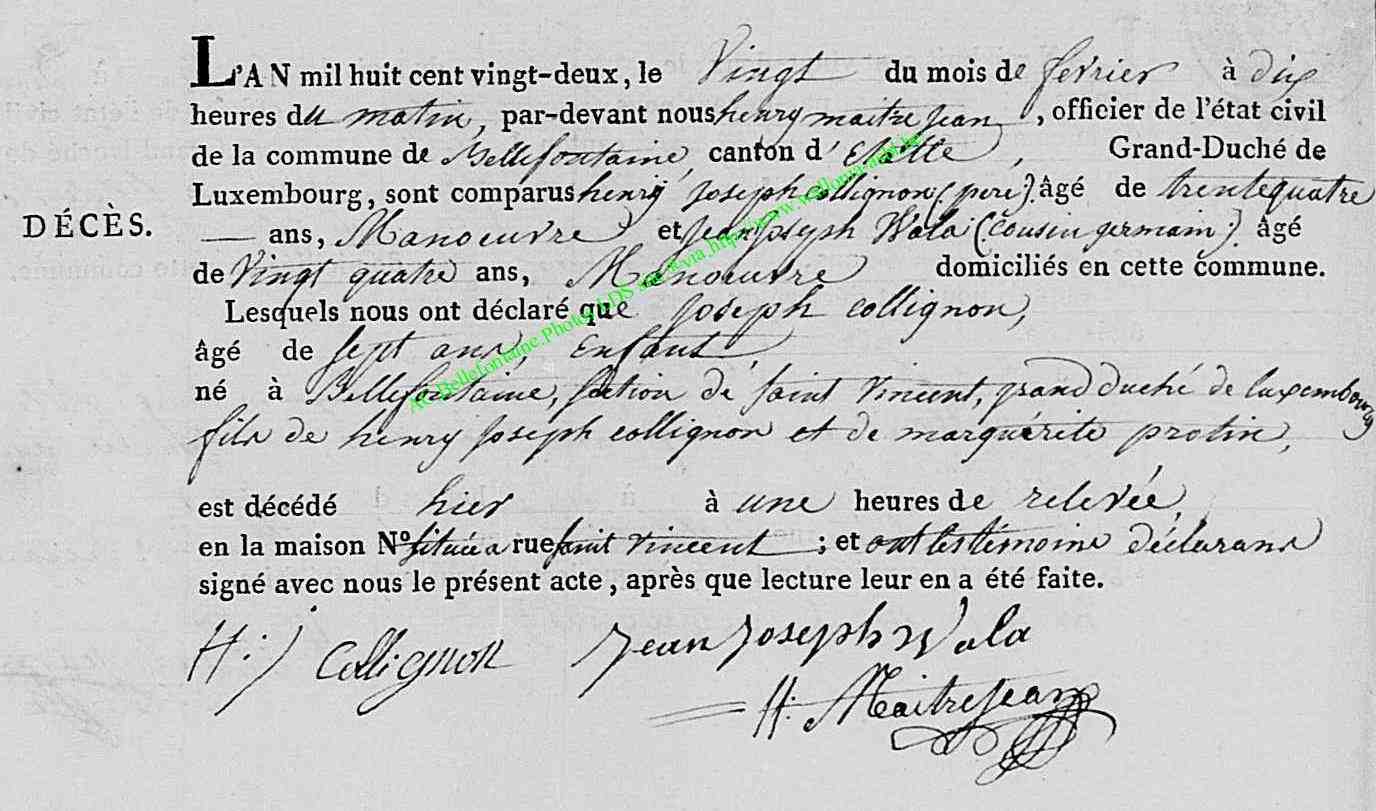 L'AN mil huit cent vingt-deux, le Vingt du mois de fevrier à dix
heures du matin, par-devant nous henry maitrejean, officier de l'état civil
de la commune de Bellefontaine, canton d'Etalle, Grand-Duché de
Luxembourg, sont comparus henry Joseph collignon (pere) âgé de trente quatre
DÉCÈS.
— ans, Manoeuvre et Jean Joseph Wala (cousin germain) âgé
de Vingt quatre ans, Manoeuvre domiciliés en cette commune.
Lesquels nous ont déclaré que Joseph collignon,
âgé de sept ans, Enfant,
né à Bellefontaine, section de saint Vincent, grand duché de luxembourg
fils de henry Joseph collignon et de marguérite protin,
est décédé hier à une heures de relevée,
en la maison N° située a rue saint vincent ; et ont les témoins déclarans
signé avec nous le présent acte, après que lecture leur en a été faite.
H: J Collignon Jean Joseph Wala
H: Maitrejean
AC Bellefontaine Photo LDS via http://www.